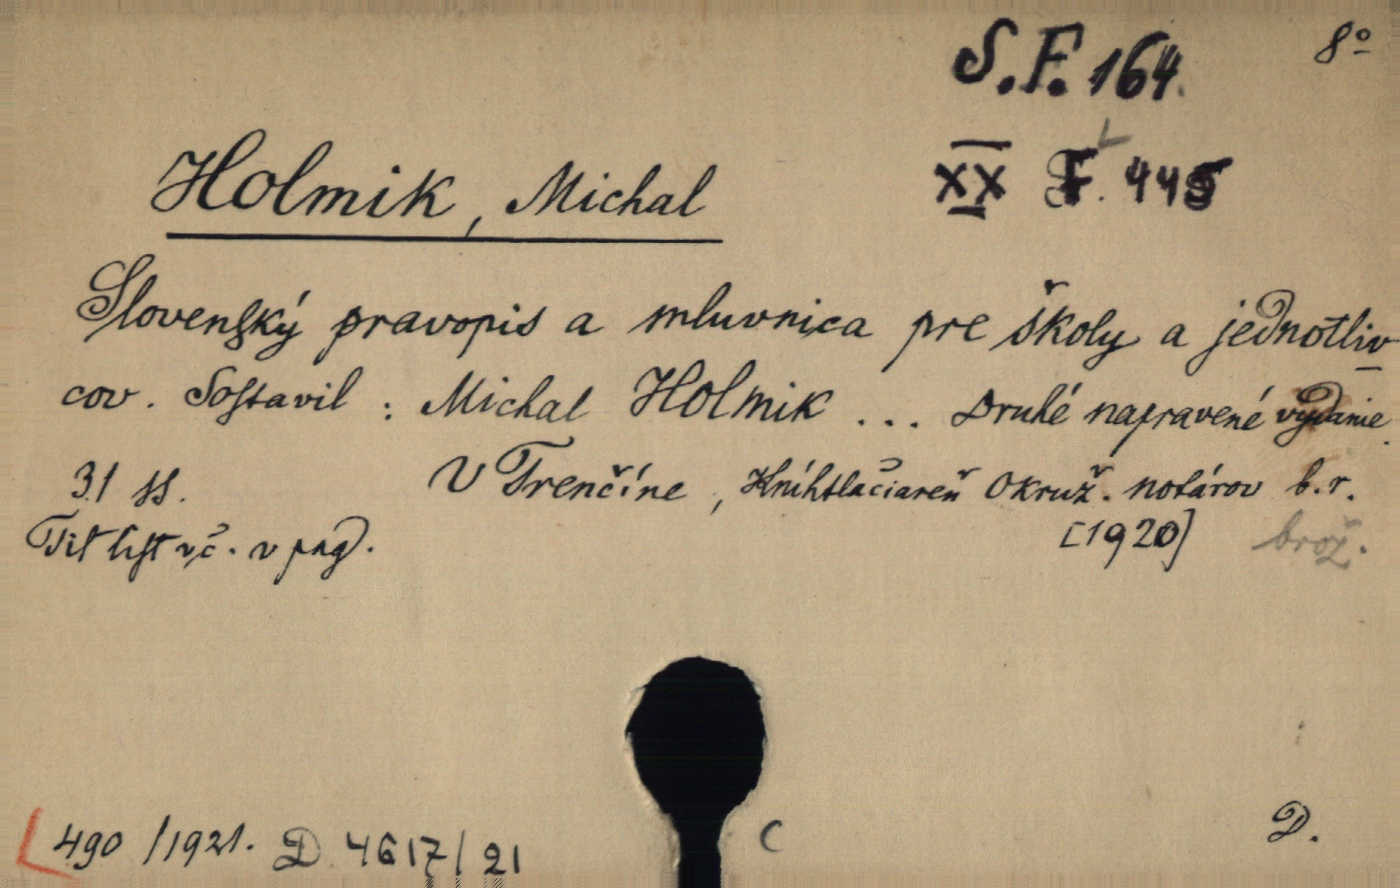 S.F. 164. 8°
XX F. 445
Holmik, Michal
Slovenský pravopis a mluvnica pre školy a jednotliv-
cov. Sostavil: Michal Holmik ... Druhé napravené vydanie.
31 ss. V Trenčíne, Kníhtlačiareň Okruž. notárov b.r.
Tit list vč. v pag. [1920] brož.
C
D.
490/1921. D 4617/21